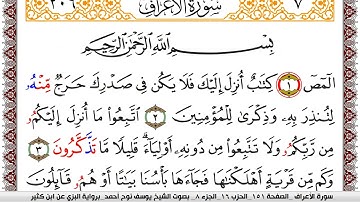 ٧ سُورَةُ الأَعْرَافِ ٢٠٦
بِسْمِ اللَّهِ الرَّحْمَٰنِ الرَّحِيمِ
الٓمٓصٓ ١ كِتَٰبٌ أُنزِلَ إِلَيْكَ فَلَا يَكُن فِي صَدْرِكَ حَرَجٌ مِّنْهُۥ
لِتُنذِرَ بِهِۦ وَذِكْرَىٰ لِلْمُؤْمِنِينَ ٢ ٱتَّبِعُوا۟ مَآ أُنزِلَ إِلَيْكُمُۥ
مِن رَّبِّكُمُۥ وَلَا تَتَّبِعُوا۟ مِن دُونِهِۦٓ أَوْلِيَآءَۗ قَلِيلًا مَّا تَذَّكَّرُونَ ٣
وَكَم مِّن قَرْيَةٍ أَهْلَكْنَٰهَا فَجَآءَهَا بَأْسُنَا بَيَٰتًا أَوْ هُمُۥ قَآئِلُونَ
سورة الأعراف _ الصفحة ١٥١ _ الحزب ١٦ _ الجزء ٨ _ بصوت الشيخ يوسف نوح أحمد _ برواية البزي عن ابن كثير